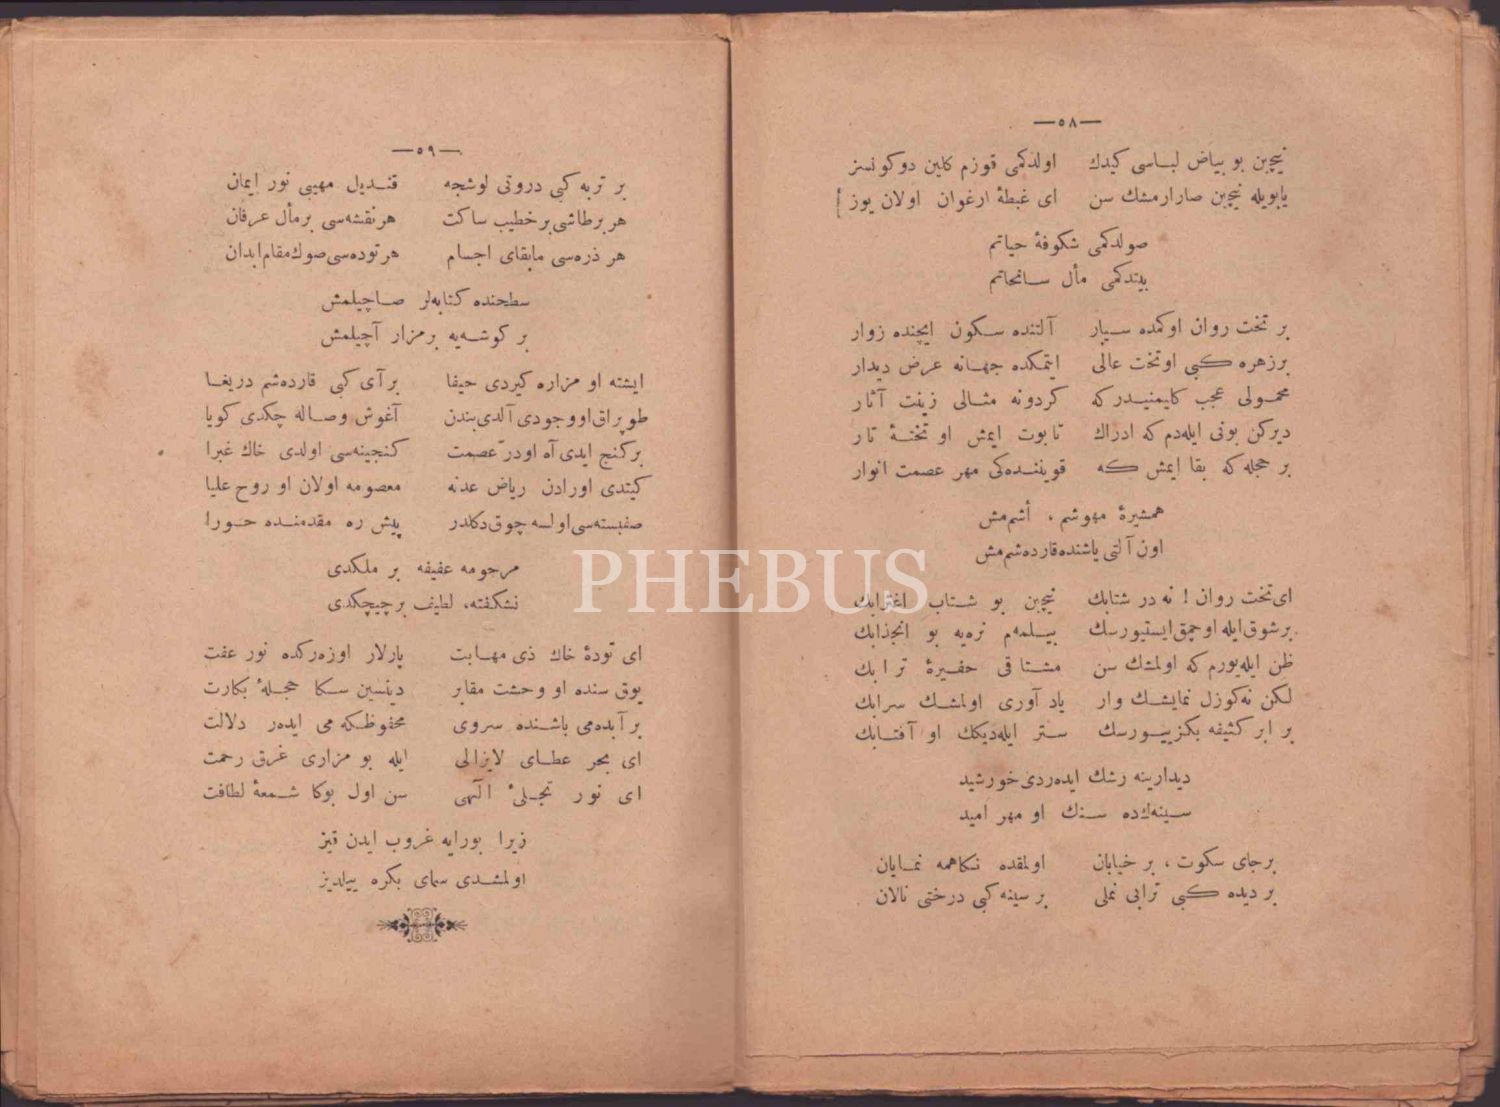 —٥٨—
نیچین بو بیاض لباسی کیدك اولدکمی قوزم کلین دوکونسز
یابویله نیچین صارارمشك سن ای غبطهٔ ارغوان اولان یوز
صولدکمی شکوفهٔ حیاتم
بیتدکمی مأل سانحاتم
بر تخت روان اوکمده سیار آلتنده سکون ایچنده زوار
برزهره کبی اوتخت عالی ایتمکده جهانه عرض دیدار
محمولی عجب کلیمنیدرکه کردونه مثالی زینت آثار
دیرکن بونی ایله‌دم که ادراك تابوت ایمش او تختهٔ تار
بر حجله که بقا ایمش که قوینده‌کی مهر عصمت انوار
همشیرهٔ مهوشم ، أشم‌مش
اون آلتی یاشنده قارده‌شم‌مش
ای تخت روان ! نه در شتابك نیچین بو شتاب اغترابك
برشوق ایله اوچمق ایستیورسك بیلمه‌م نره‌یه بو انجذابك
ظن ایله‌یورم که اولمشك سن مشتاقی حفیرهٔ ترابك
لکن نه‌کوزل نمایشك وار یاد آوری اولمشك سرابك
بر ابر کثیفه بکزییورسك ستر ایله‌دیکك او آفتابك
دیدارینه رشك ایده‌ردی خورشید
سینه‌ك‌ده سنك او مهر امید
برجای سکوت ، بر خیابان اولمقده نکاهمه نمایان
بر دیده کبی ترابی نملی بر سینه کبی درختی نالان
—٥٩—
بر تربه کبی درونی لوشجه قندیل مهیبی نور ایمان
هر برطاشی برخطیب ساکت هر نقشه‌سی برمأل عرفان
هر ذره‌سی مابقای اجسام هر توده‌سی صوك مقام ابدان
سطحنده کتابه‌لر صاچیلمش
بر کوشه‌یه برمزار آچیلمش
ایشته او مزاره کیردی حیفا برآی کبی قارده‌شم دریغا
طوپراق اووجودی آلدی بندن آغوش وصاله چکدی کویا
برکنج ایدی آه اودرّ عصمت کنجینه‌سی اولدی خاك غبرا
کیتدی اورادن ریاض عدنه معصومه اولان او روح علیا
صفبسته‌سی اولسه چوق دکلدر پیش ره مقدمنده حورا
مرحومه عفیفه بر ملکدی
نشکفته، لطیف برچیچکدی
ای تودهٔ خاك ذی مهابت پارلار اوزه‌رکده نور عفت
یوق سنده او وحشت مقابر دینسین سکا حجلهٔ بکارت
برآبده‌می باشنده سروی محفوظکه می ایده‌ر دلالت
ای بحر عطای لایزالی ایله بو مزاری غرق رحمت
ای نور تجلیٔ الٓهی سن اول بوکا شمعهٔ لطافت
زیرا بورایه غروب ایدن قیز
اولمشدی سمای بکره ییلدیز
PHEBUS